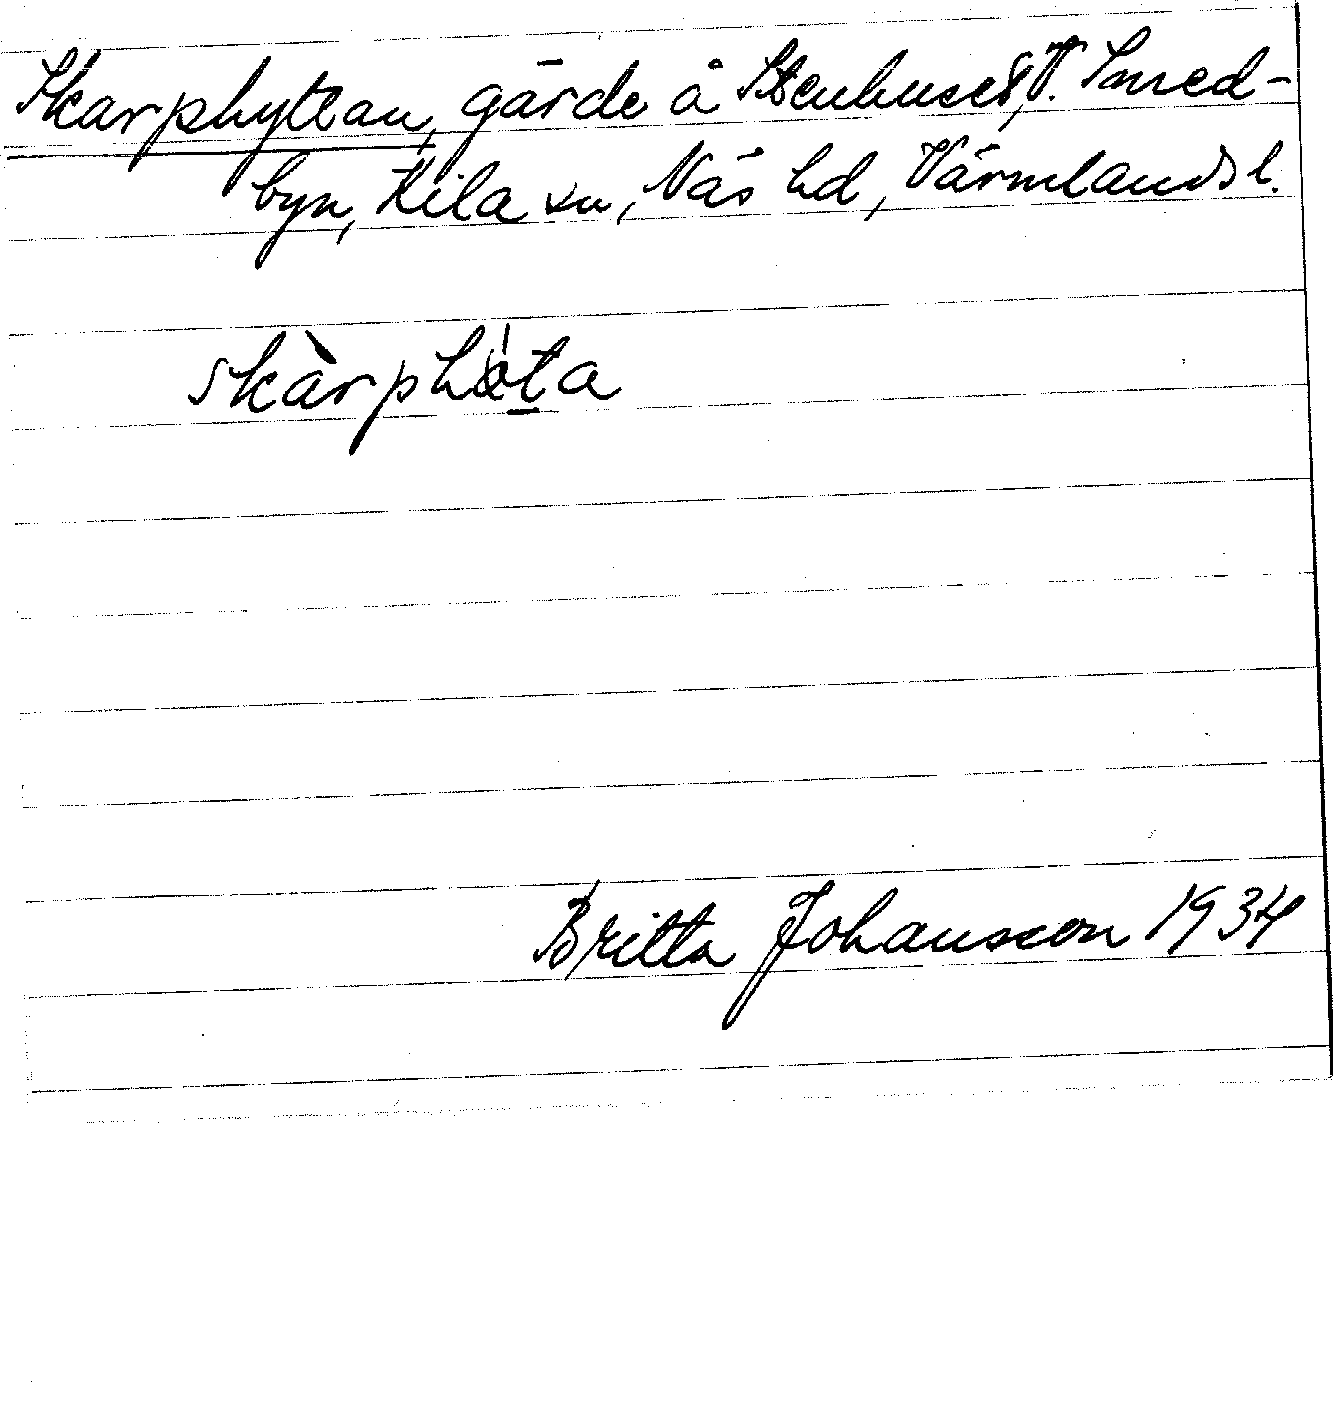 Skarphyttan, gärde å Stenhuset, V. Smed-
byn, Kila sn, Näs hd, Värmlands l.
skàrphø̀ta
Britta Johansson 1934